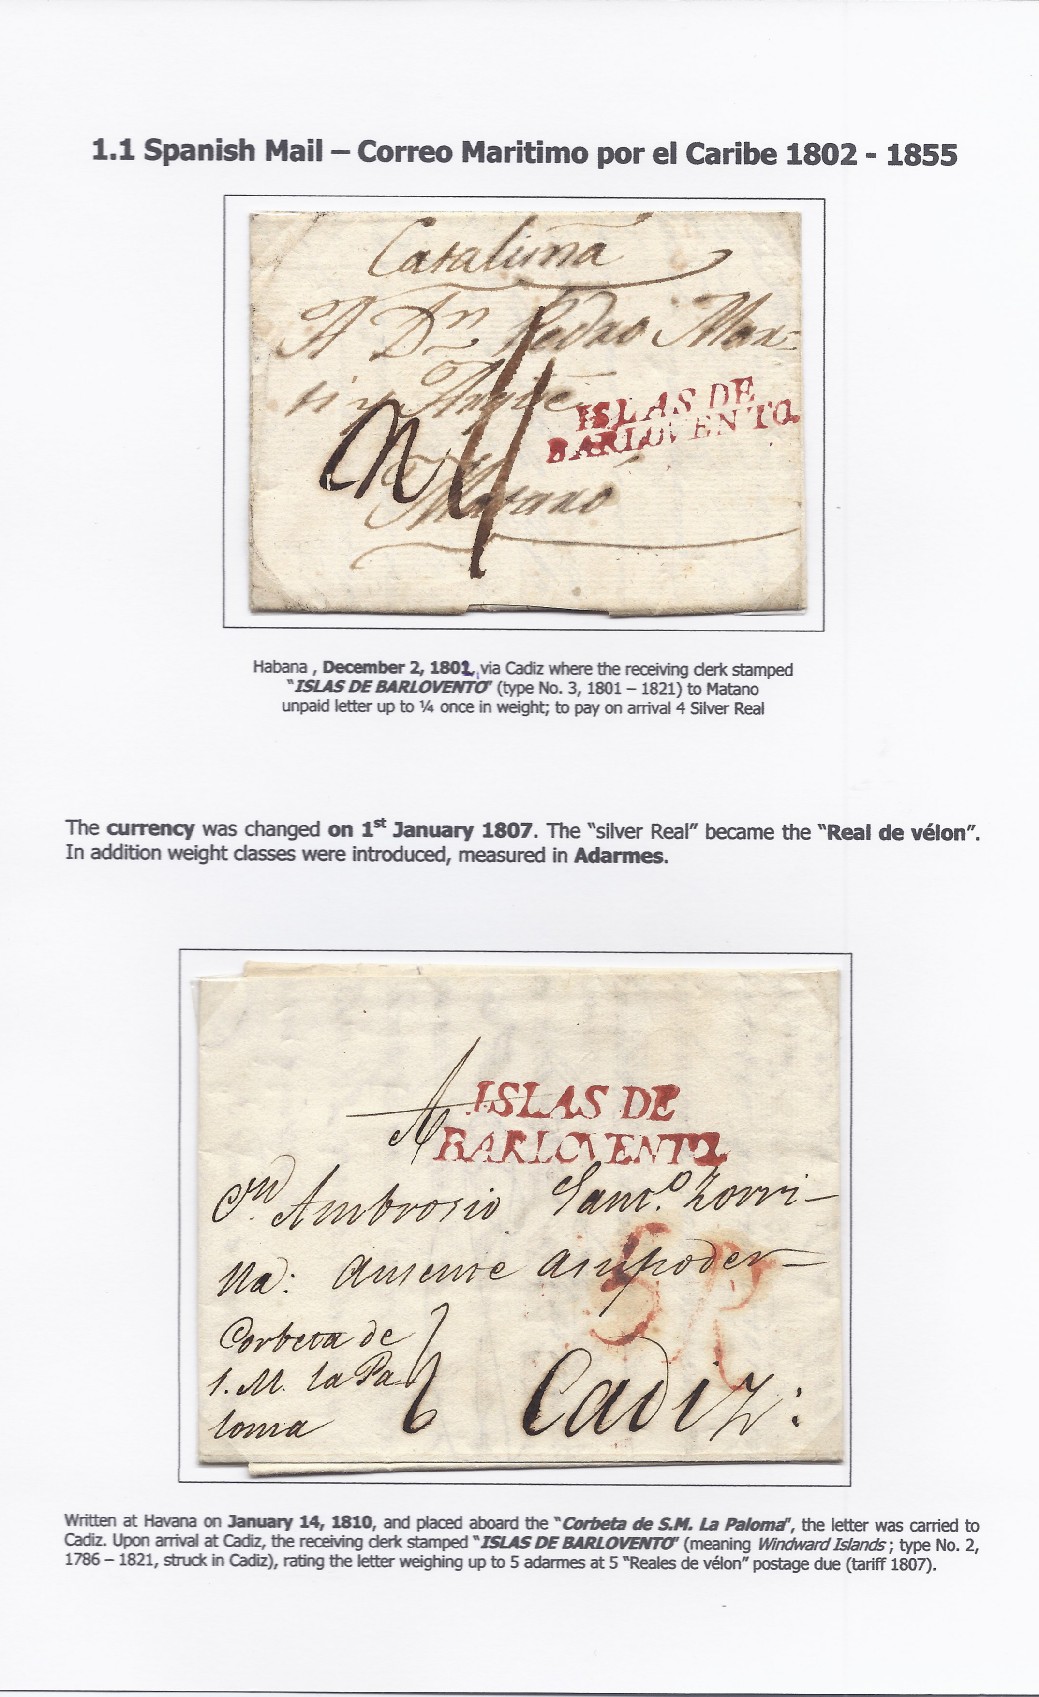 1.1 Spanish Mail – Correo Maritimo por el Caribe 1802 - 1855
Cataluña
A Dn Pedro Mar=
ti y
ISLAS DE
BARLOVENTO
4
Mataró
Habana , December 2, 1802, via Cadiz where the receiving clerk stamped
"ISLAS DE BARLOVENTO" (type No. 3, 1801 – 1821) to Matano
unpaid letter up to ¼ once in weight; to pay on arrival 4 Silver Real
The currency was changed on 1st January 1807. The "silver Real" became the "Real de vélon".
In addition weight classes were introduced, measured in Adarmes.
A
ISLAS DE
BARLOVENTO
Dn Ambrosio Sanc.o Zorri–
na: ausente asupoder–
5R
Corbeta de
S. M. la Pa
loma
Cadiz:
Written at Havana on January 14, 1810, and placed aboard the "Corbeta de S.M. La Paloma", the letter was carried to
Cadiz. Upon arrival at Cadiz, the receiving clerk stamped "ISLAS DE BARLOVENTO" (meaning Windward Islands ; type No. 2,
1786 – 1821, struck in Cadiz), rating the letter weighing up to 5 adarmes at 5 "Reales de vélon" postage due (tariff 1807).